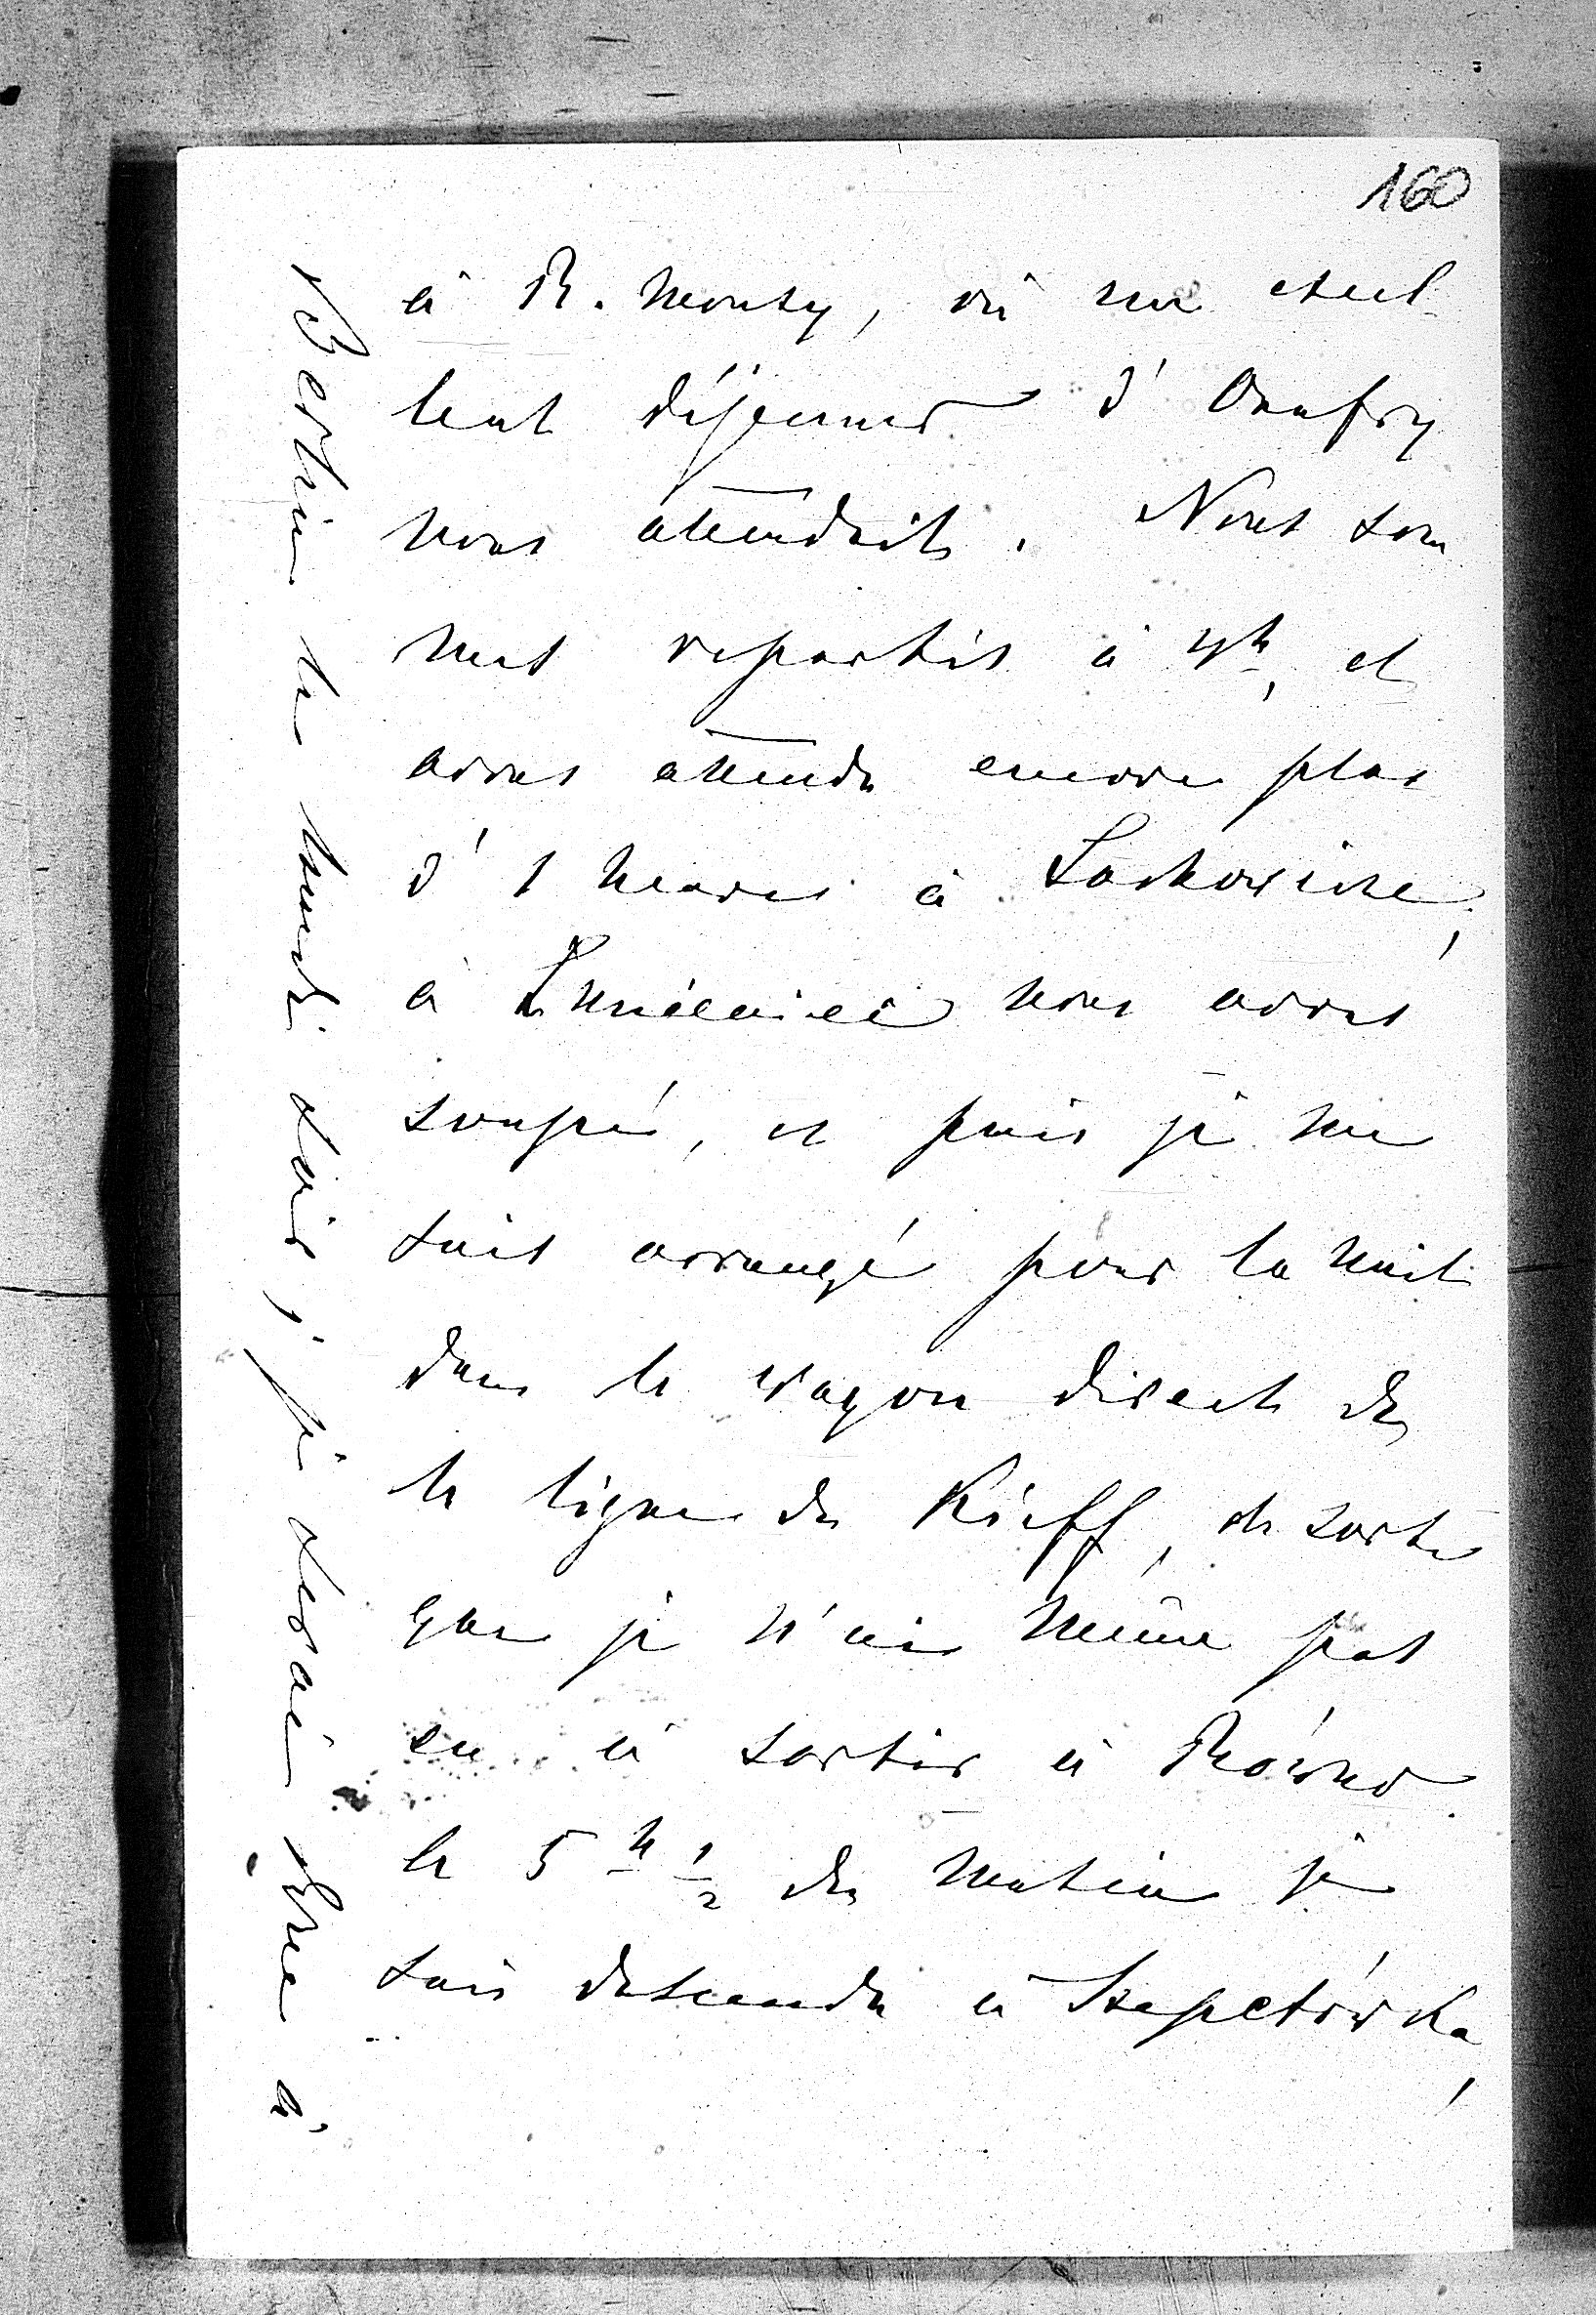 160
à R. Mosty, où un excel
lent déjeuner d'Onufry
nous attendait. Nous som
mes repartis à 4h, et
avons attendu encore plus
d'1 heure à
à Łuniniec nous avons
soupé, et puis je me
suis arrangé pour la nuit
dans le wagon direct de
la ligne de Kieff, de sorte
que je n'ai même pas
eu à sortir à Równo
le 5 h 1/2 du matin je
suis descendu à Szepetówka,
Berlin le lundi soir, je serai Łne à